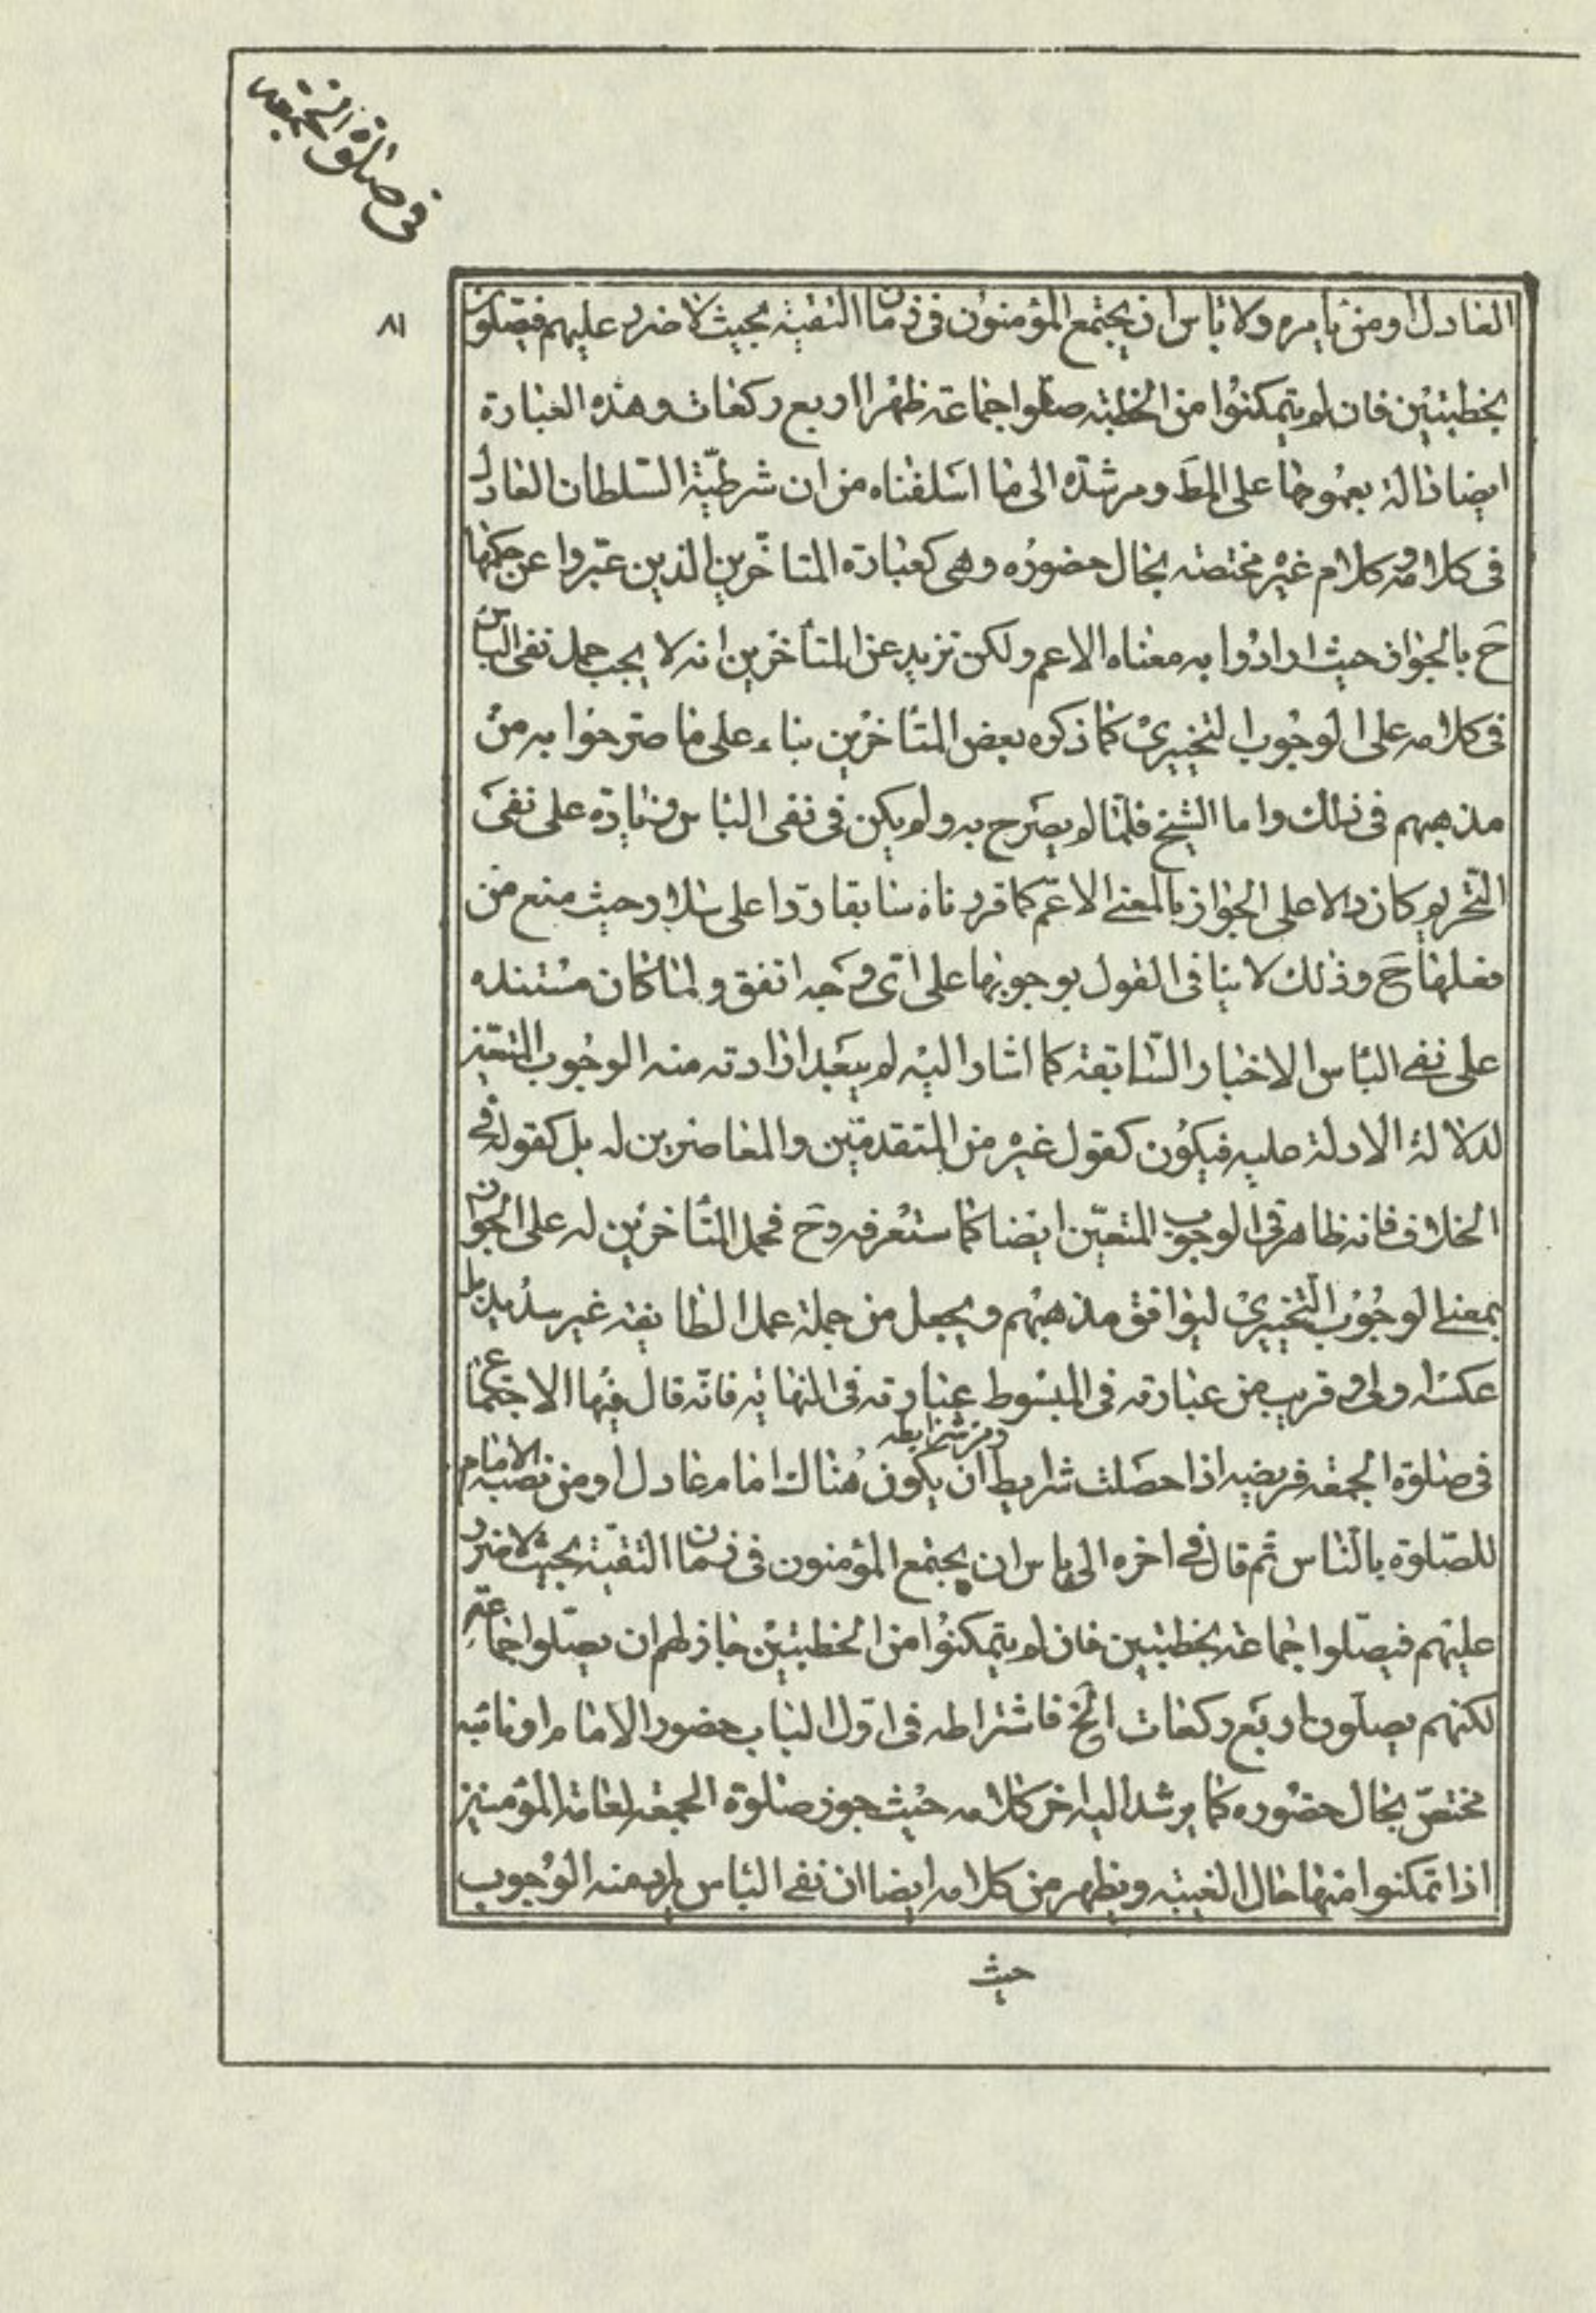 فى صلوة الجمعه
٨١
العادل او من يامره ولا باس ان يجتمع المؤمنون فى زمان التقية بحيث لا ضرر عليهم فيصلون
بخطبتين فان لم يتمكنوا من الخطبه صلوا جماعة ظهرا اربع ركعات وهذه العبارة
ايضا دالة بعمومها على المط ومرشدة الى ما اسلفناه من ان شرطية السلطان العادل
فى كلامه وكلام غيره مختصه بحال حضوره وهى كعبارة المتاخرين الذين عبروا عن حكمها
ح بالجواز حيث ارادوا به معناه الاعم ولكن تزيد عن المتأخرين انه لا يجب حمل نفى الباس
فى كلامه على الوجوب التخييرى كما ذكره بعض المتأخرين بناء على ما صرحوا به من
مذهبهم فى ذلك واما الشيخ فلما لم يصرح به ولم يكن فى نفى الباس زيادة على نفى
التحريم كان دالا على الجواز بالمعنى الاعم كما قررناه سابقا ردا على سلار حيث منع من
فعلها ح وذلك لا ينافى القول بوجوبها على اى وجه اتفق ولما كان مستنده
على نفى الباس الاخبار السابقة كما اشار اليه لم يبعد ارادته منه الوجوب المتعين
لدلالة الادلة عليه فيكون كقول غيره من المتقدمين والمعاصرين له بل كقوله فى
الخلاف فانه ظاهر فى الوجوب المتعين ايضا كما ستعرفه وح فحمل المتأخرين له على الجواز
بمعنى الوجوب التخييرى ليوافق مذهبهم ويجعل من جملة عمل الطايفه غير سديد بل
عكسه اولى وقريب من عبارته فى المبسوط عبارته فى النهايه فانه قال فيها الاجتماع
فى صلوة الجمعه فريضه اذا حصلت شرايطه ومن شرايطه ان يكون هناك امام عادل او من نصبه الامام
للصلوة بالناس ثم قال فى اخره الى باس ان يجتمع المؤمنون فى زمان التقية بحيث لا ضرر
عليهم فيصلوا جماعة بخطبتين فان لم يتمكنوا من الخطبتين جاز لهم ان يصلوا جماعة
لكنهم يصلون اربع ركعات الخ فاشتراطه فى اول الباب حضور الامام او نائبه
مختص بحال حضوره كما يرشد اليه اخر كلامه حيث جوز صلوة الجمعه لعامة المؤمنين
اذا تمكنوا منها حال الغيبه ويظهر من كلامه ايضا ان نفى الباس يراد منه الوجوب
حيث